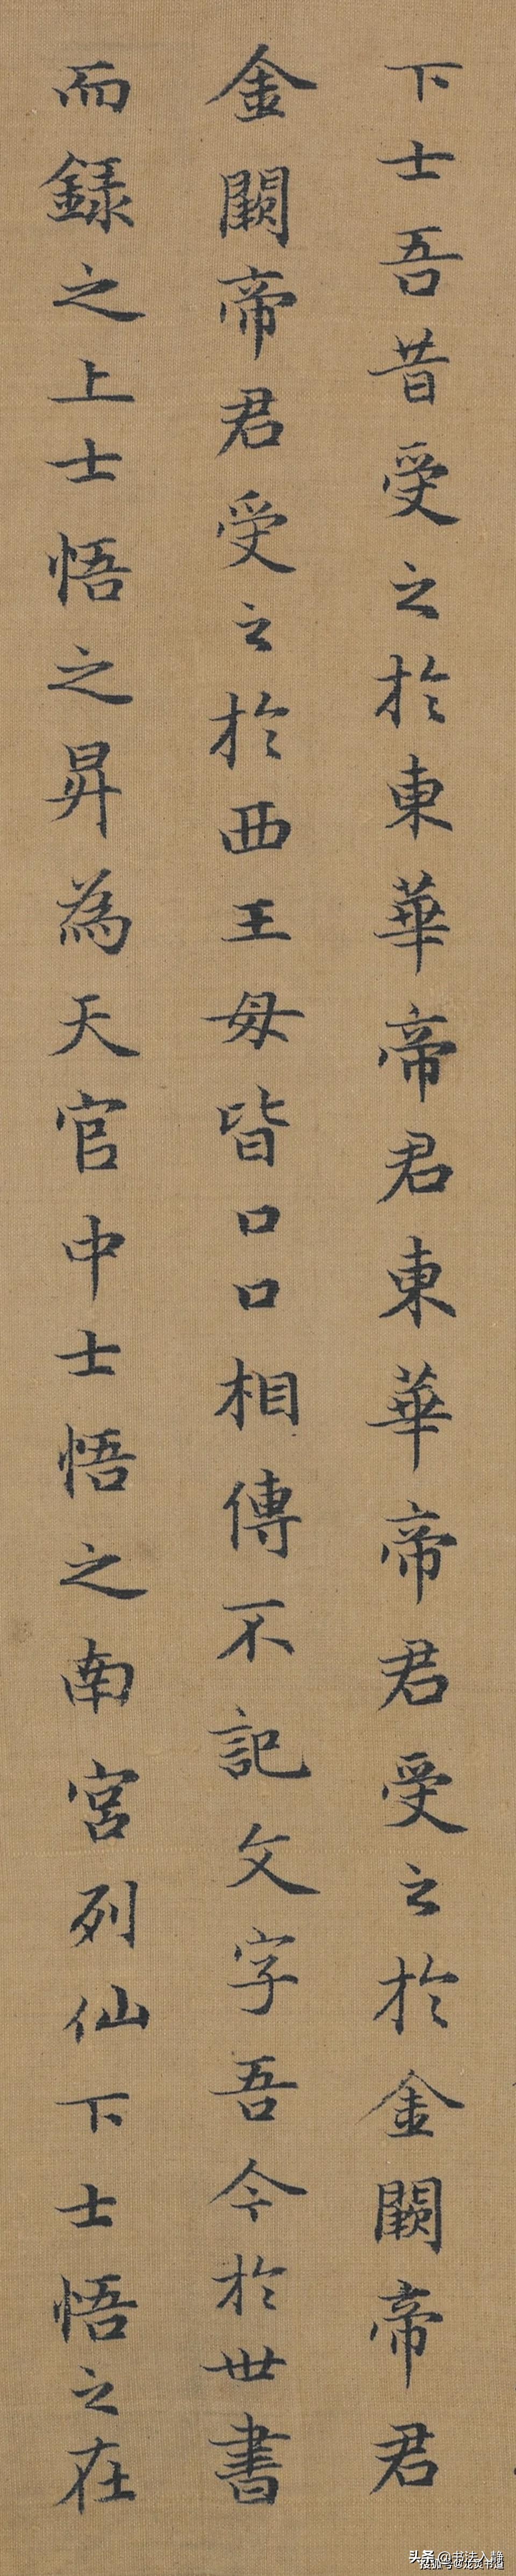 下士吾昔受之於東華帝君東華帝君受之於金闕帝君
金闕帝君受之於西王母皆口口相傳不記文字吾今於世書
而録之上士悟之昇為天官中士悟之南宮列仙下士悟之在
头条 @书法入静